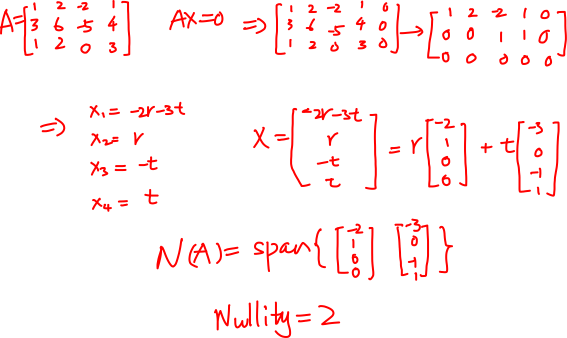 A=[1 2 -2 1; 3 6 -5 4; 1 2 0 3] AX=0 => [1 2 -2 1 0; 3 6 -5 4 0; 1 2 0 3 0] → [1 2 -2 1 0; 0 0 1 1 0; 0 0 0 0 0]
=> x₁ = -2r-3t
x₂ = r
x₃ = -t
x₄ = t
X = [-2r-3t; r; -t; t] = r[-2; 1; 0; 0] + t[-3; 0; -1; 1]
N(A) = span{[-2; 1; 0; 0] [-3; 0; -1; 1]}
Nullity = 2